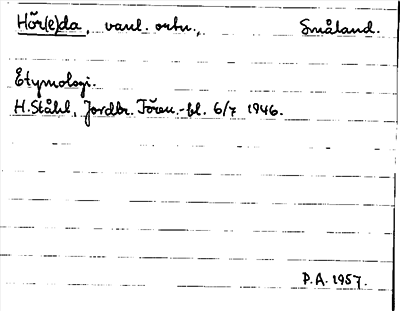 Hör(e)da, vanl. ortn., Småland.
Etymologi.
H. Ståhl, Jordbr. Fören.-bl. 6/7 1946.
P.A. 1957.